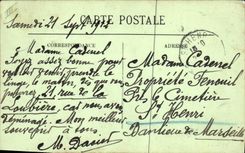 Samedi 21 Sept 1912
CARTE POSTALE
CORRESPONDANCE
Madame Cadenel
Soyez assez bonne pour
prendre le
linge, le matin, dès que vous
pourrez 21 rue de la
Loubière, car nous avons
déménagé. Mon meilleur
souvenir à tous.
M. David
Madame Cadenel
Propriété Fenouil
Près le Cimetière
St Henri
Banlieue de Marseille